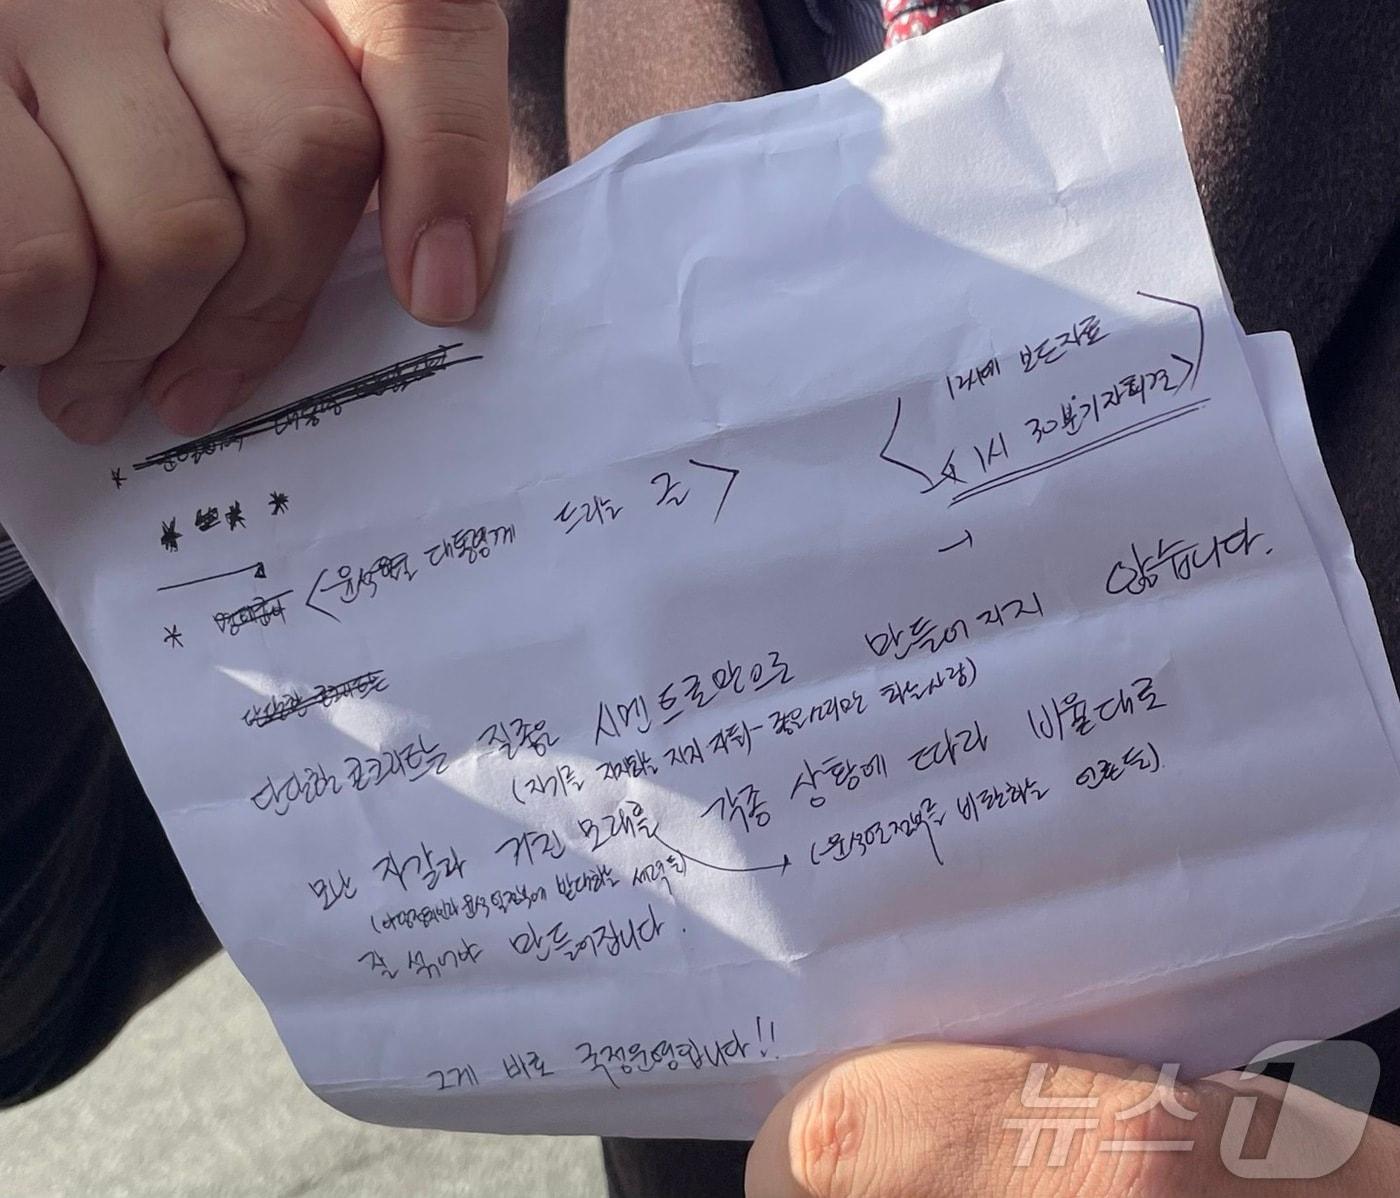 12시에 보도자료
1시 30분 기자회견
<윤석열 대통령께 드리는 글>
단단한 콘크리트는 질좋은 시멘트로만으로 만들어지지 않습니다.
(자기를 지지하는 지지자들- 좋은소리만 하는사람)
모난 자갈과 거친 모래을 각종 상황에 따라 비율대로
(야당정치인과 윤석열정부에 반대하는 세력들)
(윤석열정부를 비판하는 언론들)
잘 섞어야 만들어집니다.
그게 바로 국정운영입니다!!
뉴스1